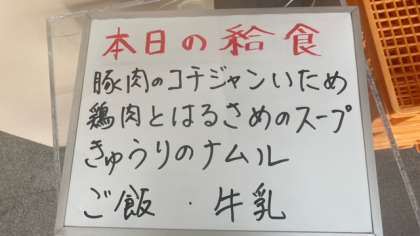 本日の給食
豚肉のコチジャンいため
鶏肉とはるさめのスープ
きゅうりのナムル
ご飯・牛乳